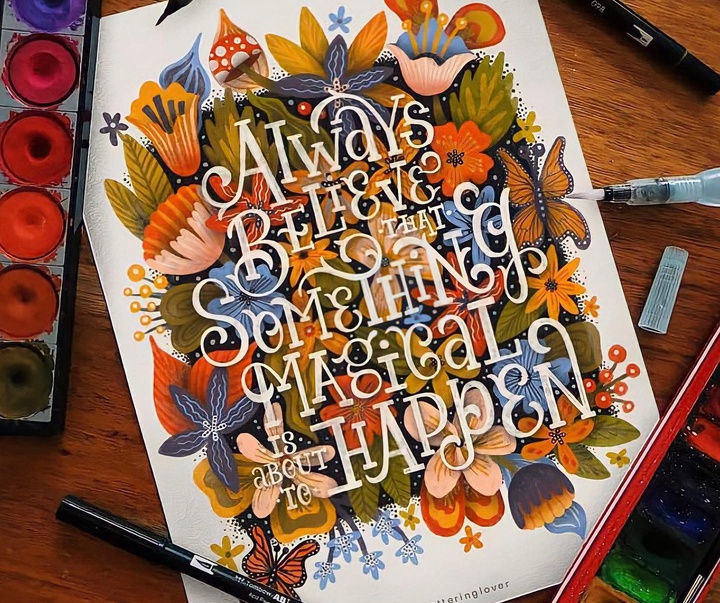 Always
Believe
that
Something
Magical
is
about
to
Happen
Tombow AB
028
tteringlover